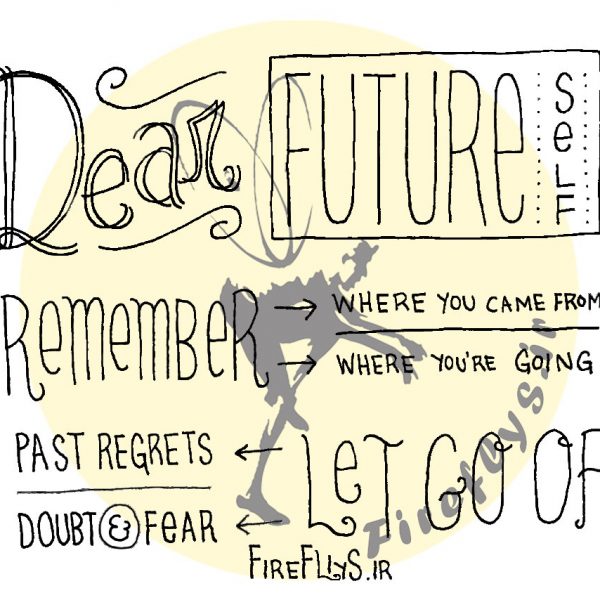 Dear FUTURE SeLF
RememBeR → WHERE YOU CAME FROM
→ WHERE YOU'RE GOING
PAST REGRETS ← LeT GO OF
DOUBT & FeAR ←
FIREFLIYS.IR
Fireflysir